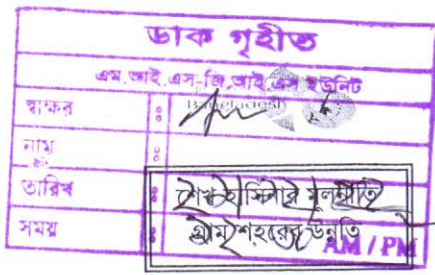 ডাক গৃহীত
এম.আই.এস-জি.আই.এস ইউনিট
Bangladesh
স্বাক্ষর ঃ
নাম ঃ
তারিখ ঃ
শেখ হাসিনার মূলনীতি
সময় ঃ
গ্রাম শহরের উন্নতি
AM / PM